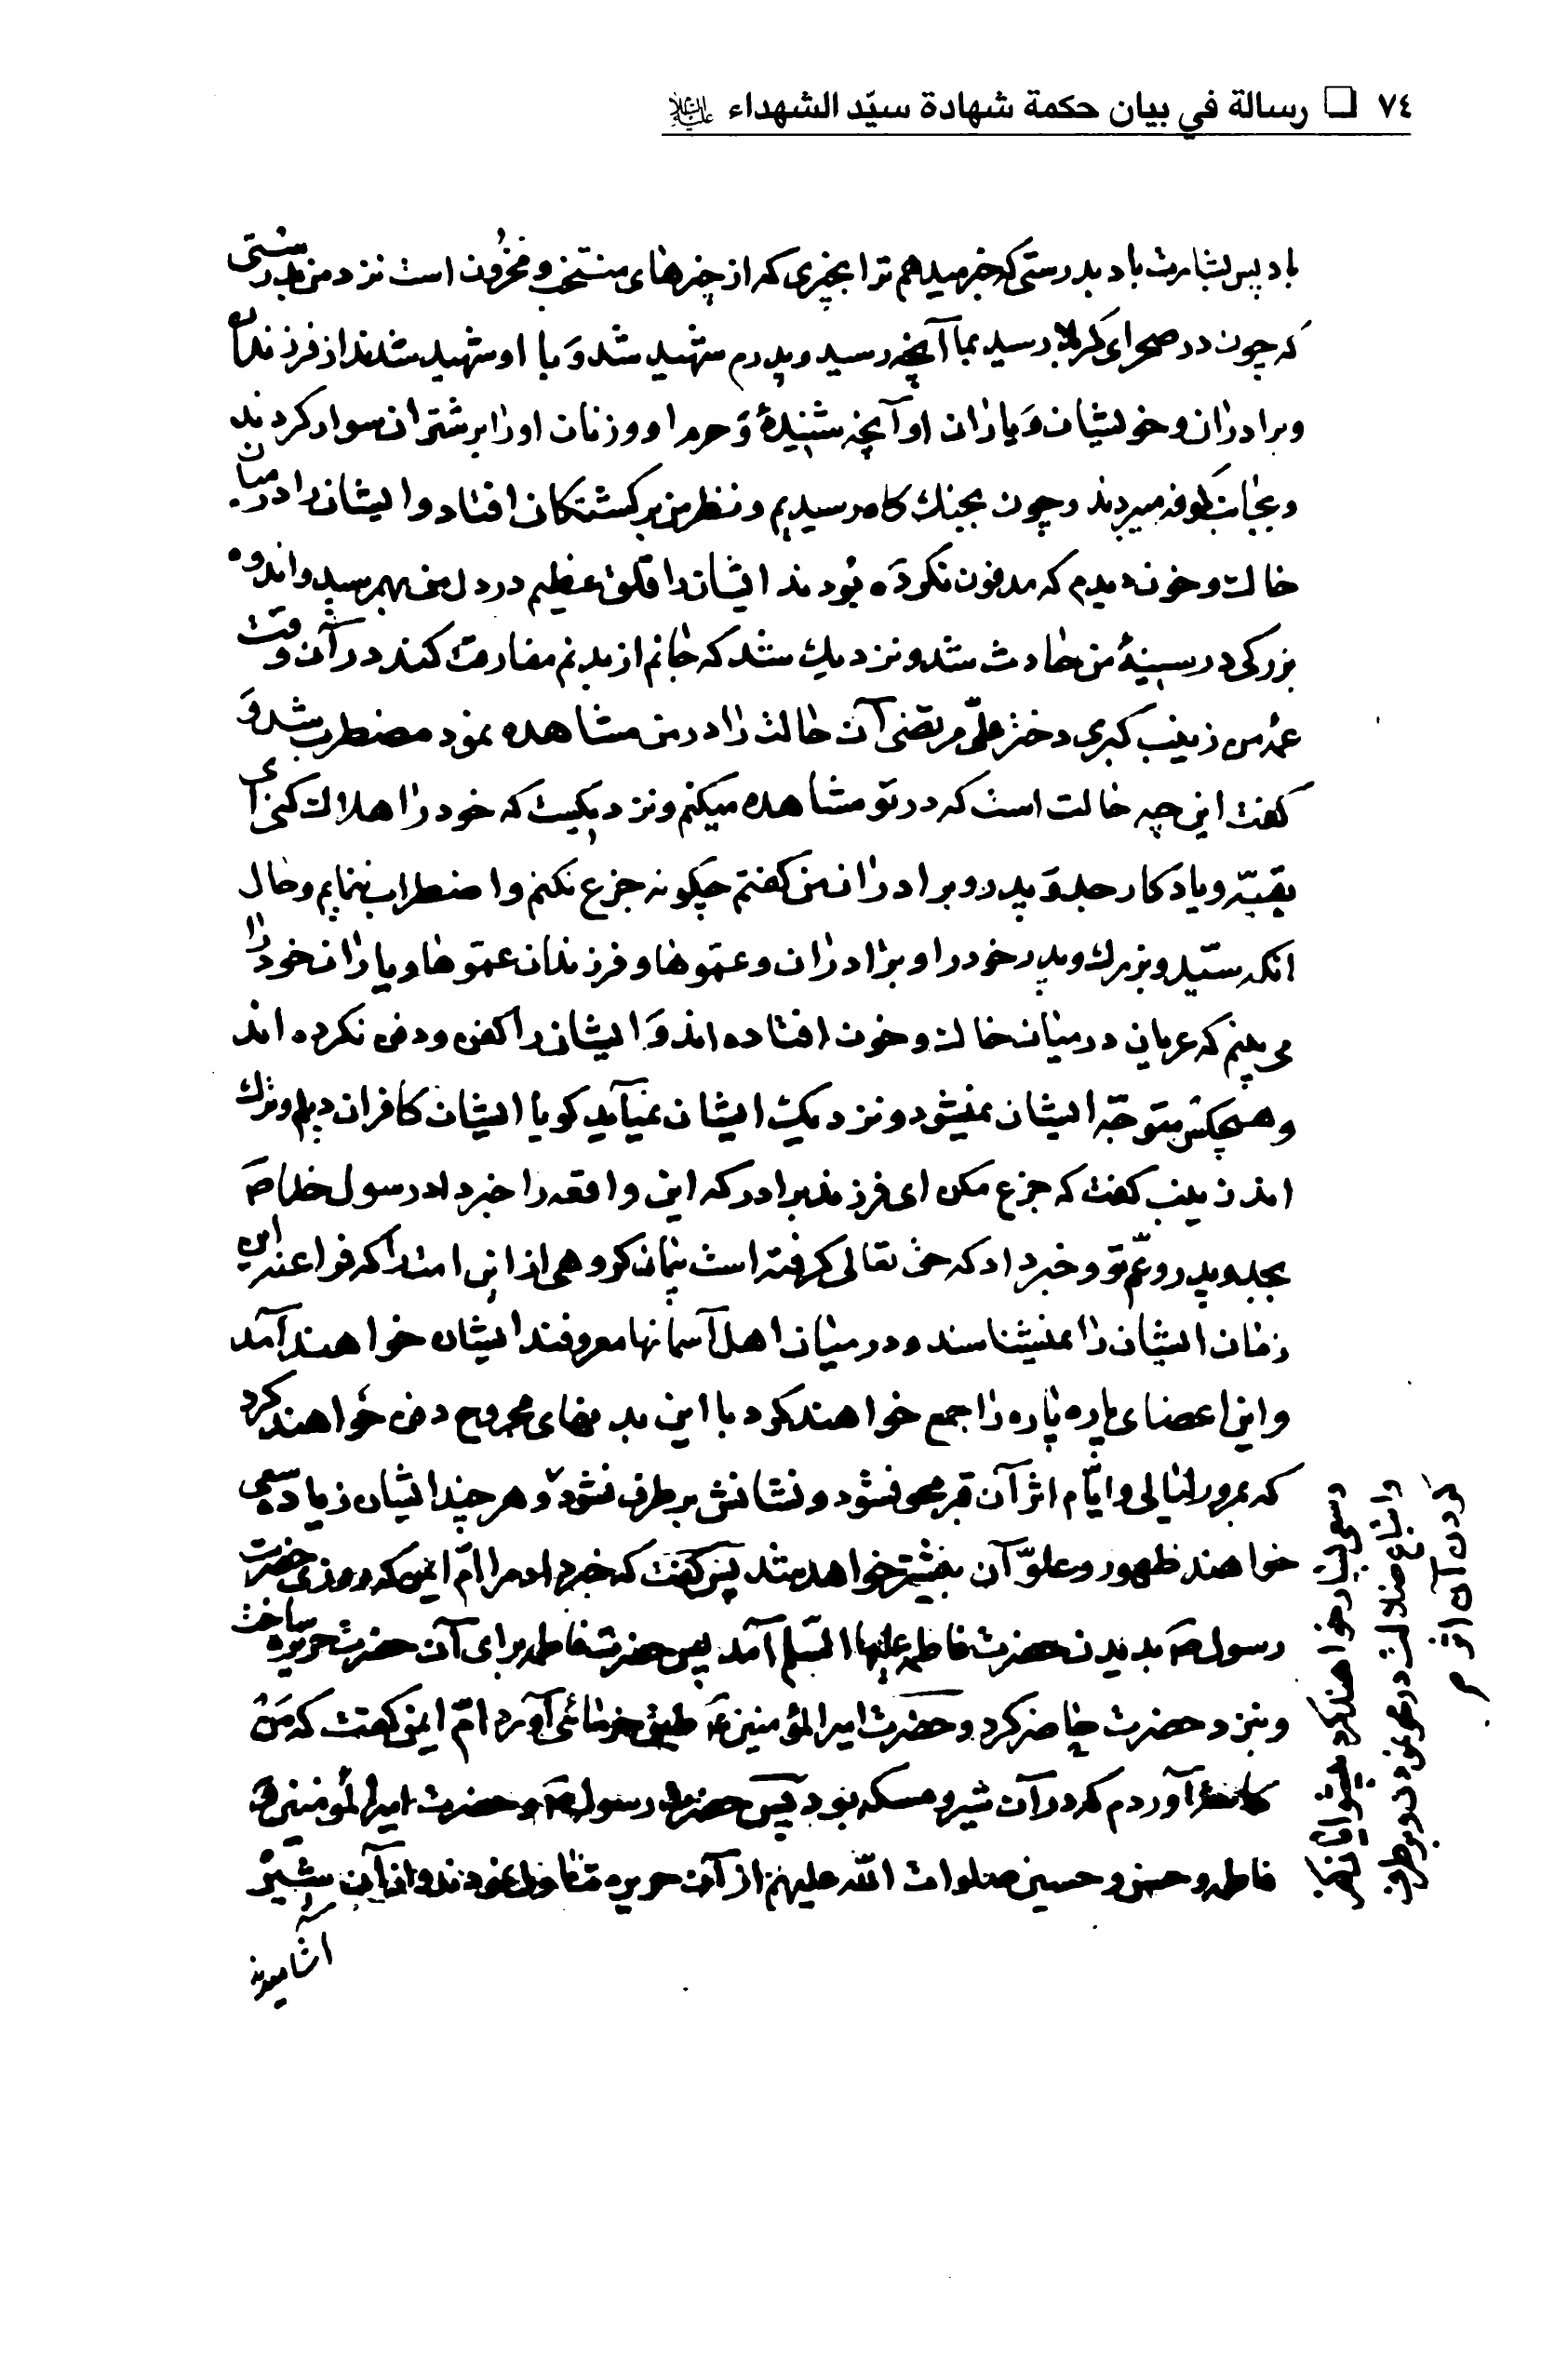 ٧٤ ❏ رسالة في بيان حكمة شهادة سيّد الشهداء عليه السلام
باد پس بشارت باد بدرستی که خبر میدهم ترا بخبری که از خبرهای منتخب و مخزون است نزد من بدرستی
که چون در صحرای کربلا رسید بما آنچه رسید و پدرم شهید شد و با او شهید شدند از فرزندان
و برادران و خویشان و یاران او آنچه شنیدهٔ و حرم او و زنان او را بر شتران سوار کردند
و بجانب کوفه میبردند و چون بجنك کاه رسیدیم و نظر من بر کشتکان افتاد و ایشان را در میان
خاك و خون دیدم که مدفون نکرده بودند ایشان را قلق عظیم در دل من بهم رسید و اندوه
بزرکی در سینهٔ من حادث شد و نزدیك شد که جانم از بدنم مفارقت کند در آن وقت
عمه من زینب کبری دختر علی مرتضی آن حالت را در من مشاهده نمود مضطرب شد و
کفت این چه حالت است که در تو مشاهده میکنم و نزدیکیست که خود را هلاك کنی ای
بقیّه و یادکار جد و پدر و برادران من کفتم چکونه جزع نکنم و اضطراب ننمایم و حال
انکه سیّد و بزرك و پدر خود را و برادران و عموها و فرزندان عموها و یاران خود را
می بینم که عریان در میان خاك و خون افتاده اند و ایشان را کفن و دفن نکرده اند
و هیچکس متوجّه ایشان نمیشود و نزدیك ایشان نمیآید کویا ایشان کافران دیلم و ترك
اند زینب کفت که جزع مکن ای فرزند برادر که این واقعه را خبر داد رسول خدا ص
بجد و پدر و عمّ تو و خبر داد که حق تعالی کرفته است پیمان کروهی از این امت را که فراعنه این
زمان ایشان را نمیشناسند و در میان اهل آسمانها معروفند ایشان خواهند آمد
و این اعضای پاره پاره را جمع خواهند کرد با این بدنهای مجروح دفن خواهند کرد
که بمرور لیالی و ایّام اثر آن قبر محو نشود و نشانش برطرف نشود و هر چند ایشان زیاده سعی
خواهند ظهور و علوّ آن بیشتر خواهد شد پس کفت که خبر داد مرا امّ ایمن که روزی حضرت
رسول ص بدیدن حضرت فاطمه علیها السّلم آمد پس حضرت فاطمه برای آن حضرت حریره ساخت
و بنزد حضرت حاضر کرد و حضرت امیر المؤمنین ع طبق خرمائی آورد امّ ایمن کفت که من
کاسهٔ آوردم که در آن شیر و مسکه بود پس حضرت رسول ص و حضرت امیر المؤمنین و
فاطمه و حسن و حسین صلوات الله علیهم از آن حریره تناول نمودند و از آن شیر
آشامیدند
و سعی بسیار خواهند کرد پیشوایان کفر
و اتباع ضلالت در محو نمودن و برطرف
کردن آن اثر م